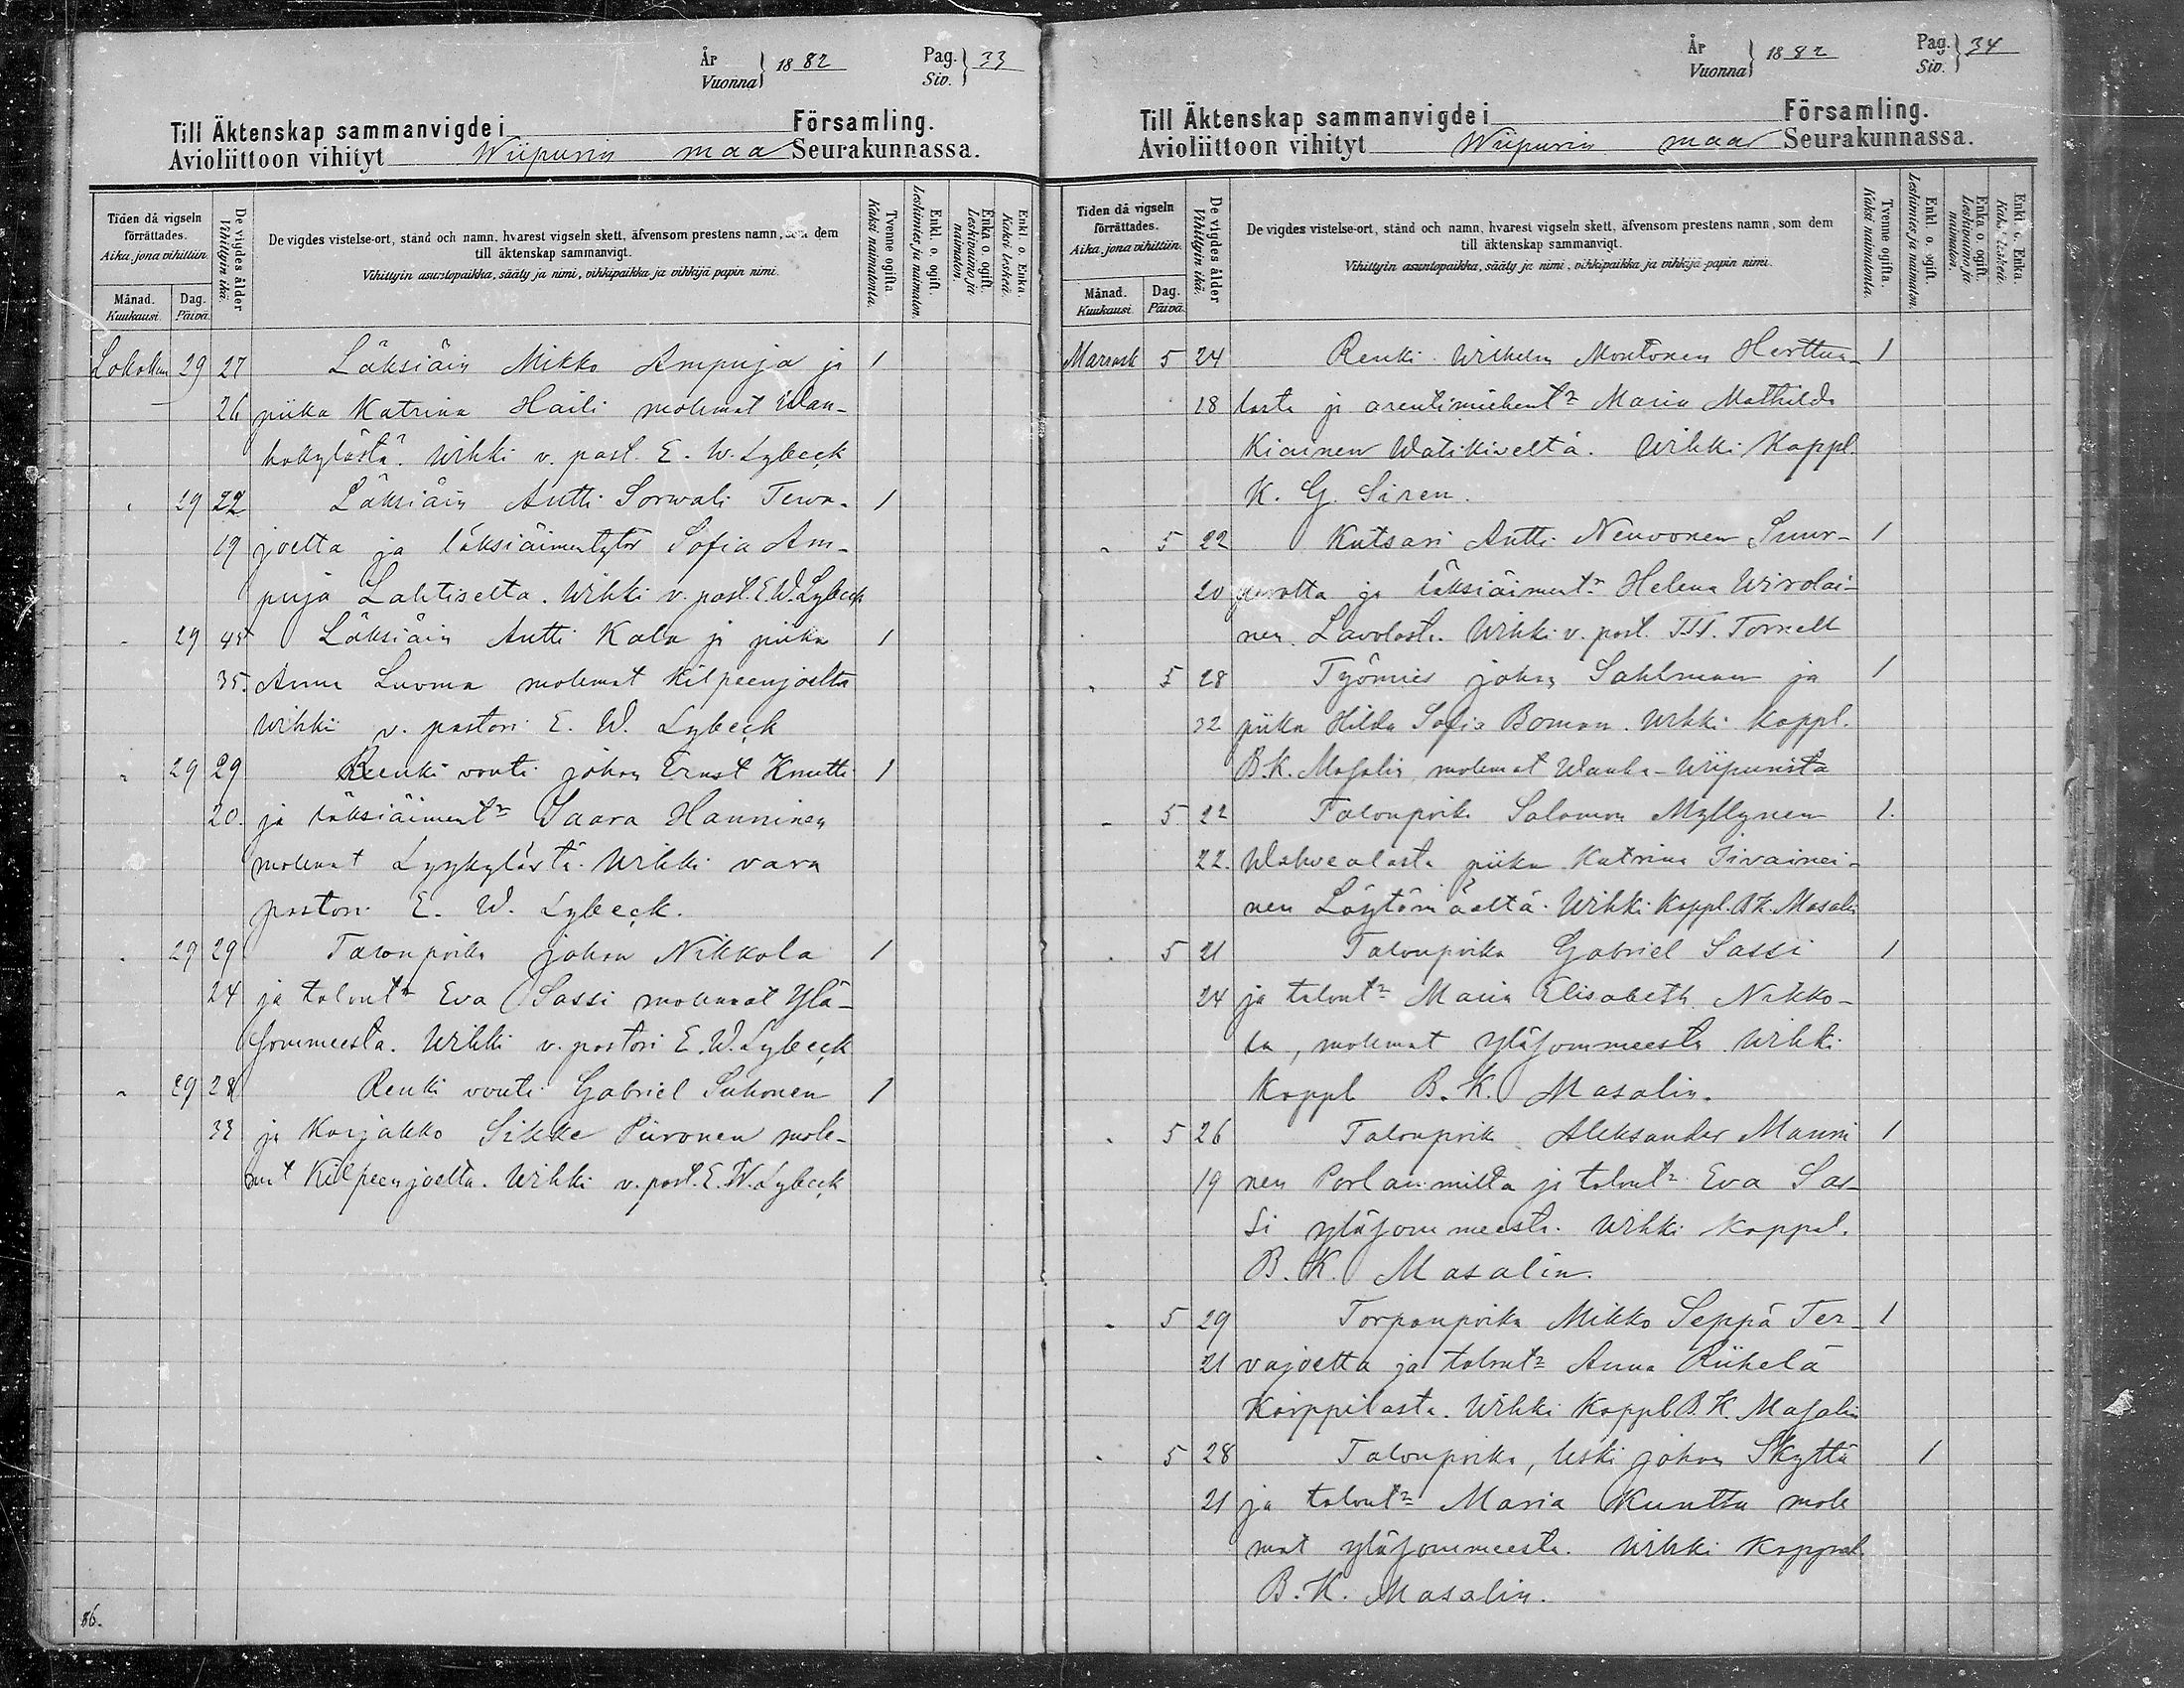 År
Vuonna 1882
Pag.
Siv. 33
Till Äktenskap sammanvigde i Församling.
Avioliittoon vihityt Wiipurin maa Seurakunnassa.
Tiden då vigseln förrättades.
Aika, jona vihittiin.
Månad.
Kuukausi.
Dag.
Päivä.
De vigdes ålder
Vihittyin ikä.
De vigdes vistelse-ort, stånd och namn, hvarest vigseln skett, äfvensom prestens namn, som dem
till äktenskap sammanvigt.
Vihittyin asuntopaikka, sääty ja nimi, vihkipaikka ja vihkijä papin nimi.
Tvenne ogifta.
Kaksi naimatonta.
Enkl. o. ogift.
Leskimies ja naimaton.
Enka o. ogift.
Leskivaimo ja naimaton.
Enkl. o. Enka.
Kaksi leskeä.
Lokakuu 29 27 Läksiäin Mikko Ampuja ja 1
26 piika Katrina Haili molemat Wan-
hakylästä. Wihki v. past. E. W. Lybeck
29 22 Läksiäin Antti Sorwali Terva- 1
19 joelta ja läksiäimentytär Sofia Am-
puja Lahtiselta. Wihki v. past. E. W. Lybeck
29 45 Läksiäin Antti Kala ja piika 1
35. Anna Luoma molemat Kilpeenjoelta
Wihki v. pastori E. W. Lybeck
29 29 Renki vouti Johan Ernst Knutti 1
20. ja läksiäiment:r Saara Hanninen
molemat Lyykylästä. Wihki vara
pastori E. W. Lybeck.
29 29 Talonpoika Johan Nikkola 1
24 ja talont:r Eva Sassi molemat Ylä-
sommeesta. Wihki v. pastori E. W. Lybeck
29 28 Renki vouti Gabriel Suhonen 1
33 ja Karjakko Sikke Piironen mole-
mat Kilpeenjoelta. Wihki v. past. E. W. Lybeck
86.
År
Vuonna 1882
Pag.
Siv. 34
Till Äktenskap sammanvigde i Församling.
Avioliittoon vihityt Wiipurin maa Seurakunnassa.
Tiden då vigseln förrättades.
Aika, jona vihittiin.
Månad.
Kuukausi.
Dag.
Päivä.
De vigdes ålder
Vihittyin ikä.
De vigdes vistelse-ort, stånd och namn, hvarest vigseln skett, äfvensom prestens namn, som dem
till äktenskap sammanvigt.
Vihittyin asuntopaikka, sääty ja nimi, vihkipaikka ja vihkijä papin nimi.
Tvenne ogifta.
Kaksi naimatonta.
Enkl. o. ogift.
Leskimies ja naimaton.
Enka o. ogift.
Leskivaimo ja naimaton.
Enkl. o. Enka.
Kaksi leskeä.
Marrask 5 24 Renki Wilhelm Montonen Herttua- 1
18 lasta ja arentimiehent:r Maria Mathilda
Kiainen Watikiveltä. Wihki Kappl.
K. G. Siren.
5 22 Kutsari Antti Neuvonen Suur- 1
20 ja läksiäiment:r Helena Wirolai-
nen Lavolasta. Wihki v. past. Tornell
5 28 Työmies Johan Sahlman ja 1
32 piika Hilda Sofia Boman. Wihki Kappl.
B. K. Masalin molemat Wanha-Wiipurista
5 22 Talonpoika Salomon Myllynen 1.
22. piika Katrina Sivainei-
nen Löytömäeltä. Wihki Kappl. B. K. Masalin
5 21 Talonpoika Gabriel Sassi 1
24 ja talont:r Maria Elisabeth Nikko-
la, molemat Yläsommeesta Wihki
Kappl B. K. Masalin.
5 26 Talonpoik Aleksander Manni 1
19 nen Porlammilta ja talont:r Eva Sas-
si Yläsommeesta. Wihki Kappal.
B. K. Masalin.
5 29 Torpanpoika Mikko Seppä Ter- 1
21 vajoelta ja talont:r Anna Riihelä
Karppilasta. Wihki Kappl B. K. Masalin
5 28 Talonpoika, leski Johan Skyttä 1
21 ja talont:r Maria Kunttu mole
mat Yläsommeesta. Wihki Kappal
B. K. Masalin.